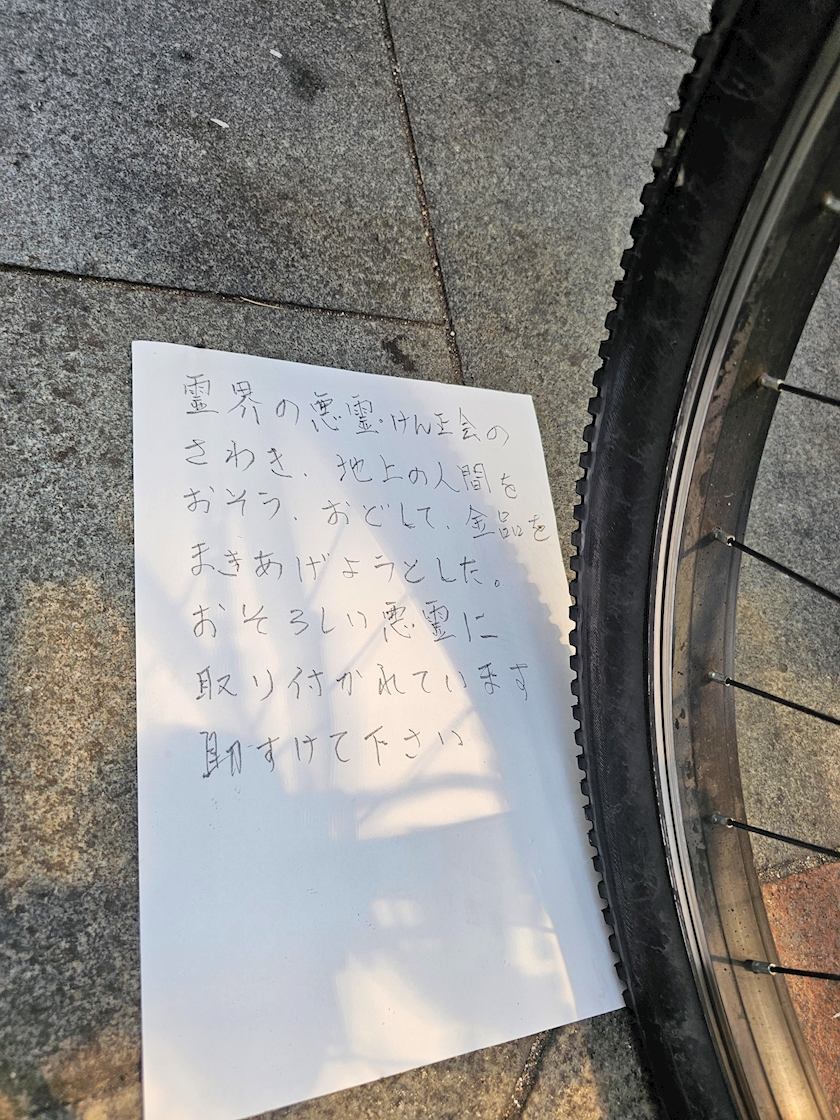 霊界の悪霊.けん正会の
さわき、地上の人間を
おそう、おどして、金品を
まきあげようとした。
おそろしい悪霊に
取り付かれています
助すけて下さい